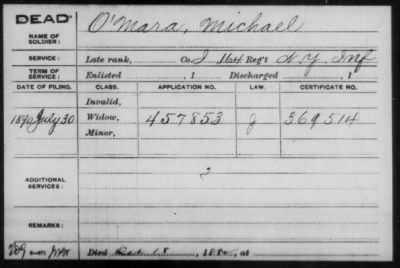 DEAD
NAME OF SOLDIER: O'Mara, Michael
SERVICE: Late rank, Co. I 164 Reg't N.Y. Inf
TERM OF SERVICE: Enlisted , 1 Discharged , 1
DATE OF FILING. CLASS. APPLICATION NO. LAW. CERTIFICATE NO.
Invalid,
1890 July 30 Widow, 457853 J 369514
Minor,
ADDITIONAL SERVICES:
REMARKS:
Died , 188 , at